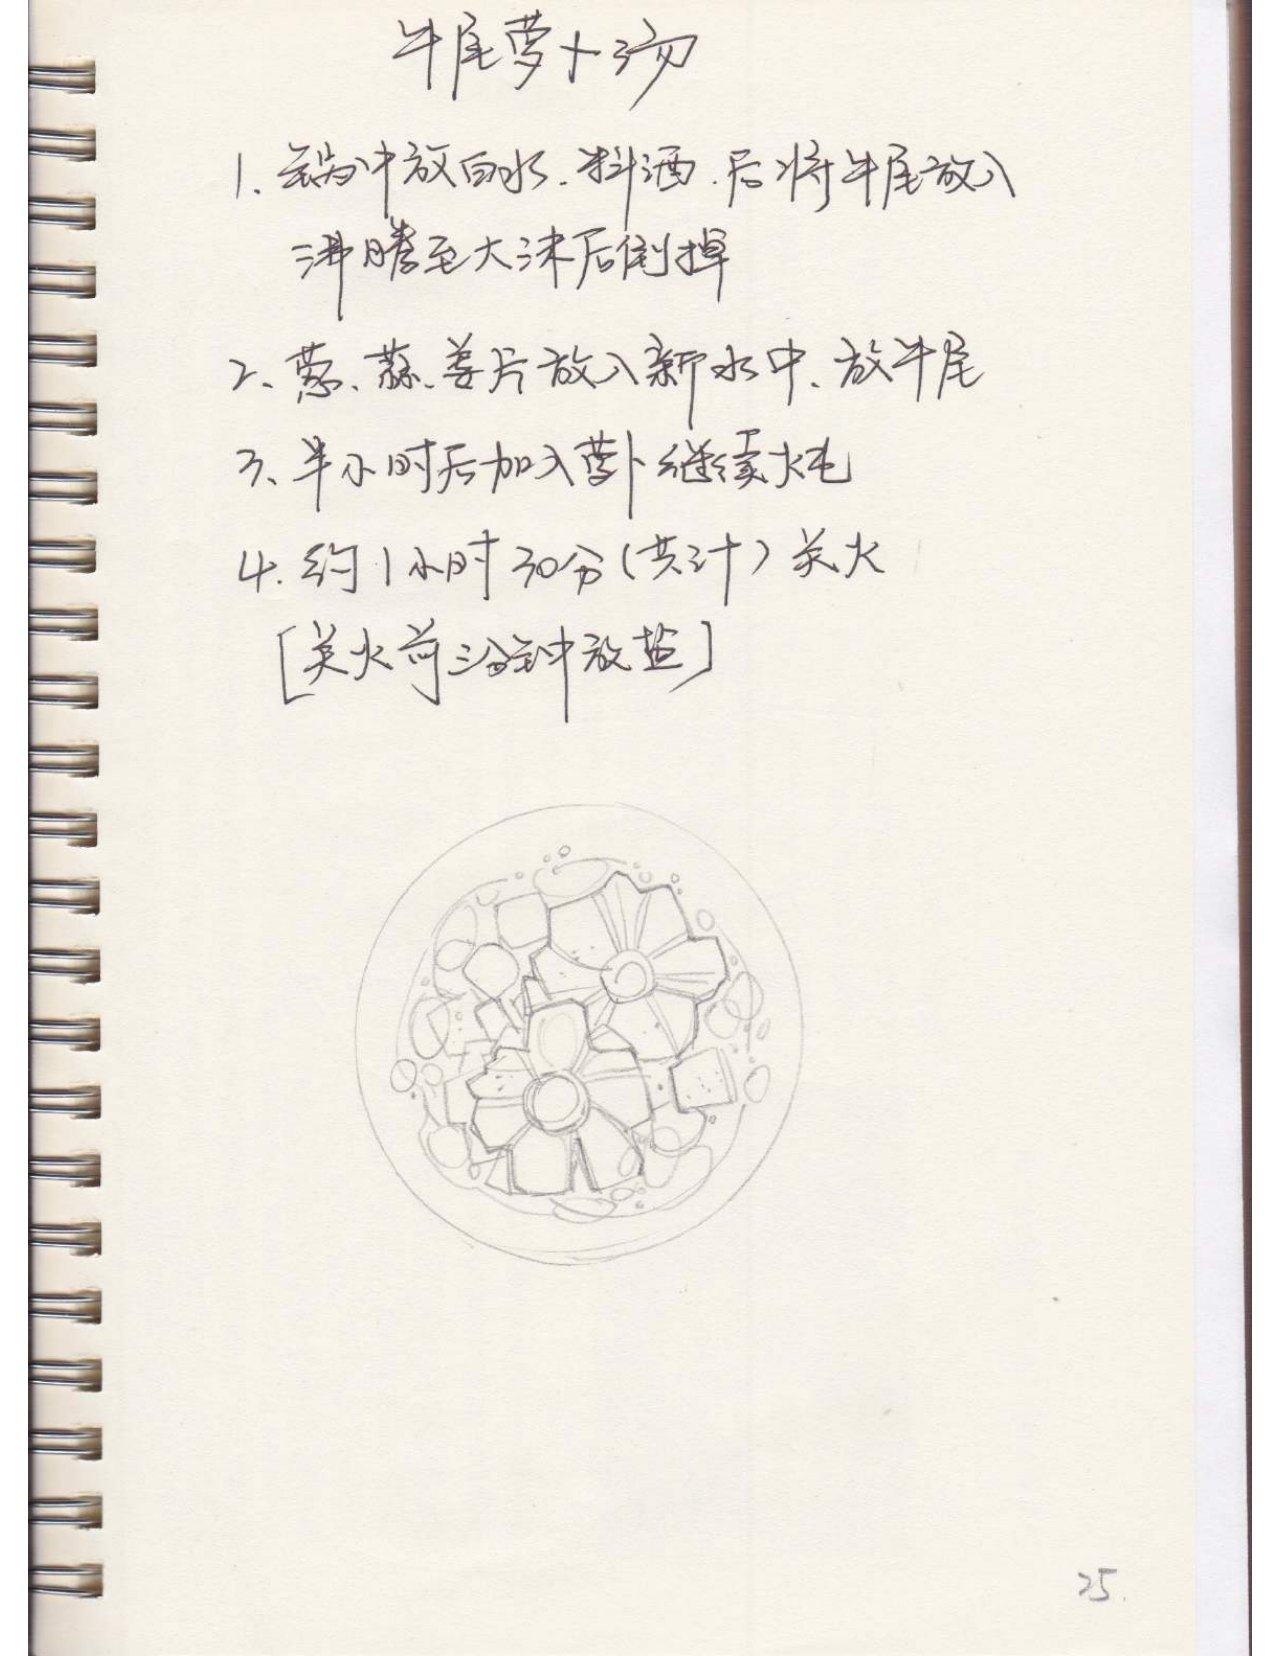 牛尾萝卜汤
1、锅中放白水、料酒、后将牛尾放入
沸腾至大沫后倒掉
2、葱、蒜、姜片放入新水中、放牛尾
3、半小时后加入萝卜继续炖
4. 约1小时30分(共计)关火
[关火前三分钟中放盐]
25.